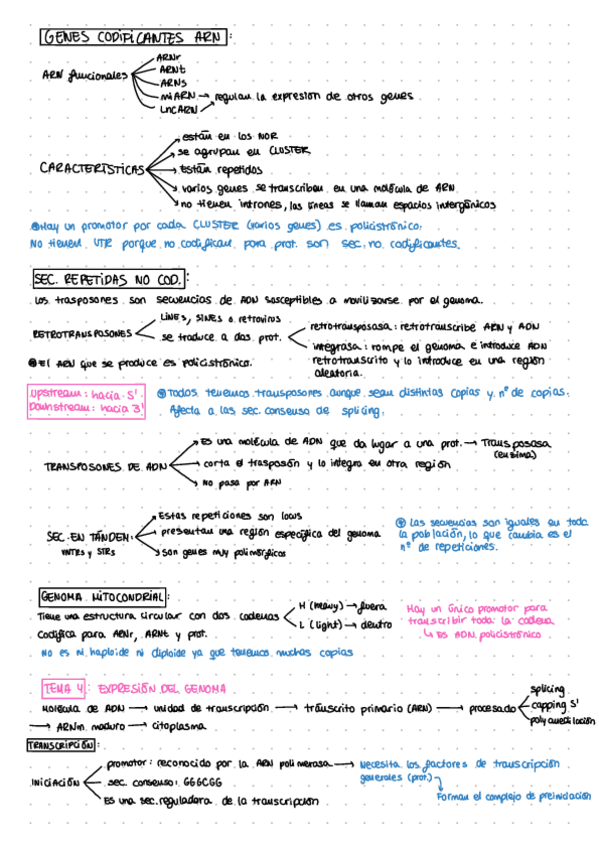 GENES CODIFICANTES ARN:
ARN funcionales
ARNr
ARNt
ARNs
miARN → regulan la expresión de otros genes
LncARN
CARACTERÍSTICAS
están en los NOR
se agrupan en CLUSTER
Están repetidos
varios genes se transcriben en una molécula de ARN
no tienen intrones, las líneas se llaman espacios intergénicos
Hay un promotor por cada CLUSTER (varios genes) es policistrónico.
No tienen UTR porque no codifican para prot. son sec. no codificantes.
SEC. REPETIDAS NO COD.:
Los trasposones son secuencias de ADN susceptibles a movilizarse por el genoma.
RETROTRANSPOSONES
LINES, SINES o retrovirus
se traduce a dos prot.
retrotransposasa: retrotranscribe ARN y ADN
integrasa: rompe el genoma e introduce ADN
retrotranscrito y lo introduce en una región
aleatoria.
El ARN que se produce es policistrónico.
Upstream: hacia 5'
Downstream: hacia 3'
Todos tenemos transposones aunque sean distintas copias y nº de copias.
Afecta a las sec. consenso de splicing.
TRANSPOSONES DE ADN
Es una molécula de ADN que da lugar a una prot. → Transposasa
(enzima)
corta el trasposón y lo integra en otra región
No pasa por ARN
SEC. EN TÁNDEM:
VNTRs y STRs
Estas repeticiones son locus
presentan una región específica del genoma
son genes muy polimórficos
Las secuencias son iguales en toda
la población, lo que cambia es el
nº de repeticiones.
GENOMA MITOCONDRIAL:
Tiene una estructura circular con dos cadenas
H (heavy) → fuera
L (light) → dentro
Codifica para ARNr, ARNt y prot.
No es ni haploide ni diploide ya que tenemos muchas copias
Hay un único promotor para
transcribir toda la cadena
↳ Es ADN policistrónico
TEMA 4: EXPRESIÓN DEL GENOMA
Molécula de ADN → unidad de transcripción → tránscrito primario (ARN) → procesado
splicing
capping 5'
polyadenilación
→ ARNm maduro → citoplasma
TRANSCRIPCIÓN:
INICIACIÓN
promotor: reconocido por la ARN polimerasa → Necesita los factores de transcripción
generales (prot.)
sec. consenso: GGGCGG
Es una sec. reguladora de la transcripción
Forman el complejo de preiniciación